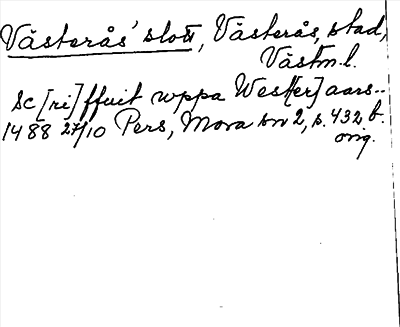 Västerås' slott, Västerås, stad,
Västm.l.
Sc[ri]ffuit wppa West[er]aars..
1488 27/10 Pers, Mora sn 2, s. 432 b.
orig.